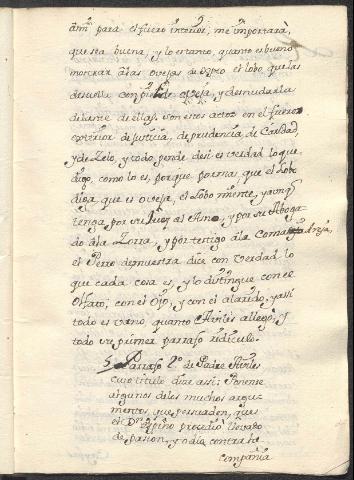 ami para el fuero interior, me importarà,
que sea buena, y lo es tanto, quanto es bueno
mostrar à las ovejas de Xpto el lobo, que las
desuella con piel de oveja, y desnudarla
delante de ellas. Son estos actos en el fuero
exterior de Justicia, de prudencia, de Caridad,
y de Zelo, y todo pende de si es verdad lo que
digo, como lo es, porque por mas, que el Lobo
diga, que es oveja, el Lobo miente, y aunq
tenga por su Juez al Asno, y por su Aboga
do à la Zorra, y por testigo à la Comadreja,
el Perro demuestra, dice con verdad lo
que cada cosa es, y lo distingue con el
Olfato; con el Ojo, y con el alarido, y assi
todo es vano quanto Aviles allegò, y
todo su primer parrafo ridiculo.
§ Parrafo 2º de Padre Aviles
cuio titulo dice assi: Ponense
algunos de los muchos argu-
mentos, que persuaden, que
el Dr Espino procediò llevado
de pasion, y odio contra la
Compañia